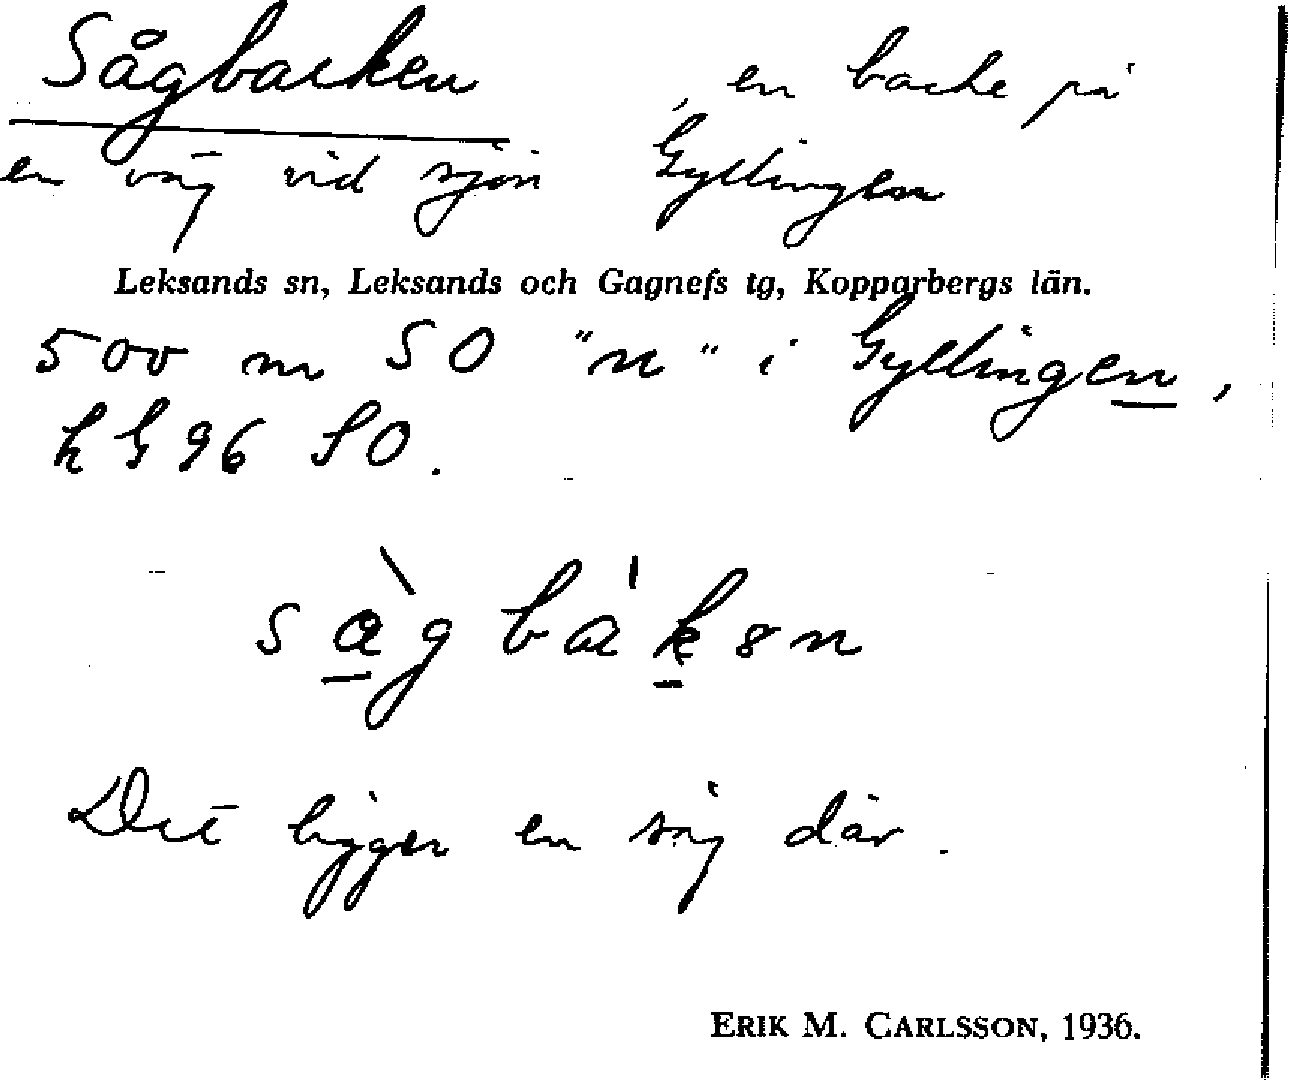 Sågbacken , en backe på
en väg vid sjön Gyllingen
Leksands sn, Leksands och Gagnefs tg, Kopparbergs län.
500 m SO "n" i Gyllingen,
h G 96 SO.
Det ligger en såg där.
ERIK M. CARLSSON, 1936.